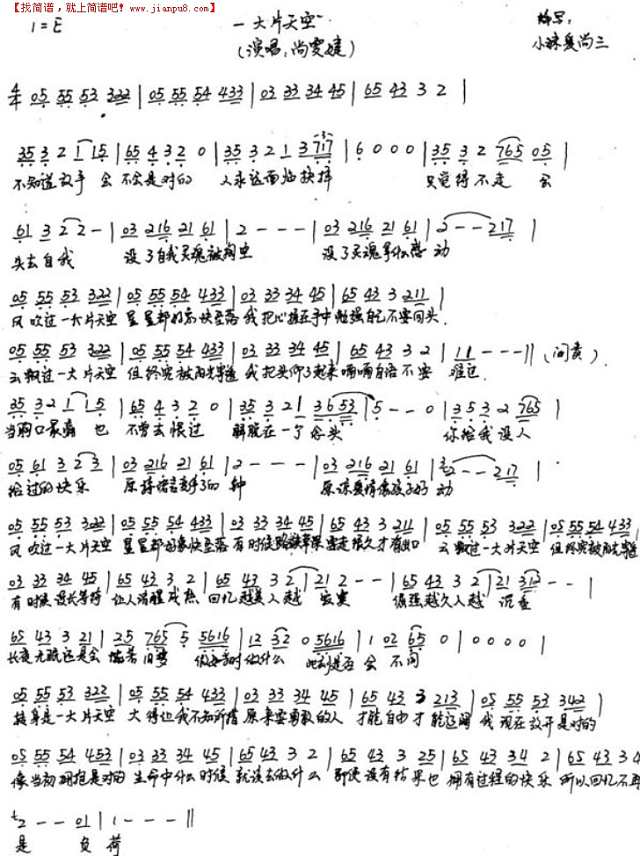 【找简谱，就上简谱吧！www.jianpu8.com】
1=E 一大片天空 编写：
(演唱：尚雯婕) 小妹爱尚三
4/4 05 55 53 322 | 05 55 54 433 | 03 33 34 45 | 65 43 3 2 |
35 3 2 1 15 | 65 4 3 2 0 | 35 3 2 1 3 717 | 6 0 0 0 | 35 3 2 765 05 |
不知道放手 会 不会是对的 人永远面临抉择 只觉得不走 会
61 3 2 2 - | 03 216 21 61 | 2 - - - | 03 216 21 61 | 2 - - 217 |
失去自我 没了自我灵魂被掏空 没了灵魂拿什么感 动
05 55 53 322 | 05 55 54 433 | 03 33 34 45 | 65 43 3 211 |
风吹过一大片天空 星星都 坠落 我把心握在手中 勉强自己不要回头
05 55 53 322 | 05 55 54 433 | 03 33 34 45 | 65 43 3 2 | 11 - - - || (间奏)
云飘过一大片天空 但终究被 我把头仰起来 喃喃自语不要 难过
35 3 2 1 1 5 | 65 4 3 2 0 | 35 3 21 3 6 53 | 5 - - 0 | 3 5 3 2 765 |
当胸口最痛 也 不曾去恨过 解脱在一个念头 你给我没人
05 61 3 2 3 | 03 216 21 61 | 2 - - - | 03 216 21 61 | 2 - - 217 |
给过的快乐 原 种 原 动
05 55 53 322 | 05 55 54 433 | 03 33 34 45 | 65 43 3 211 | 05 55 53 322 | 05 55 54 433 |
风吹过一大片天空 星星都 坠落 有时候 要走很久才有出口 云飘过一大片天空 但终究被
03 33 34 45 | 65 43 3 2 | 65 43 3 2 | 21 2 - - | 65 43 3 2 | 21 312 - - |
有时候 让人清醒 回忆越美人越 寂寞 倔强越久人越 沉重
65 43 3 21 | 25 765 5 5616 | 12 32 0 5616 | 1 02 65 0 | 0 0 0 0 |
长夜无眠还是会 旧梦 做什么 是否 会 不同
05 55 53 322 | 05 55 54 433 | 03 33 34 45 | 65 43 3 213 | 05 55 53 342 |
转身是一大片天空 大得让我不知所措 原来要勇敢的人 才能自由才能辽阔 我现在放开是对的
05 55 54 453 | 03 33 34 45 | 65 43 3 2 | 65 43 3 25 | 65 43 34 2 | 65 43 34
像当初拥抱是对的 生命中什么时候 就该去做什么 即使没有结果也 拥有过程的快乐 所以回忆不再
2 - - 01 | 1 - - - ||
是 负 荷